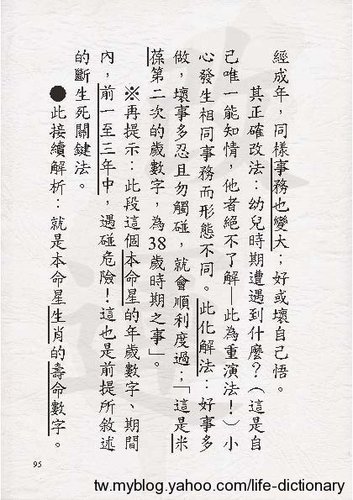 經成年，同樣事務也變大；好或壞自己悟。
其正確改法：幼兒時期遭遇到什麼？（這是自
己唯一能知情，他者絕不了解—此為重演法！）小
心發生相同事務而形態不同。此化解法：好事多
做，壞事多忍且勿觸碰，就會順利度過；「這是米
葆第二次的歲數字，為38歲時期之事」。
※再提示：此段這個本命星的年歲數字、期間
內，前一至三年中，遇碰危險！這也是前提所敘述
的斷生死關鍵法。
●此接續解析：就是本命星生肖的壽命數字。
95
tw.myblog.yahoo.com/life-dictionary